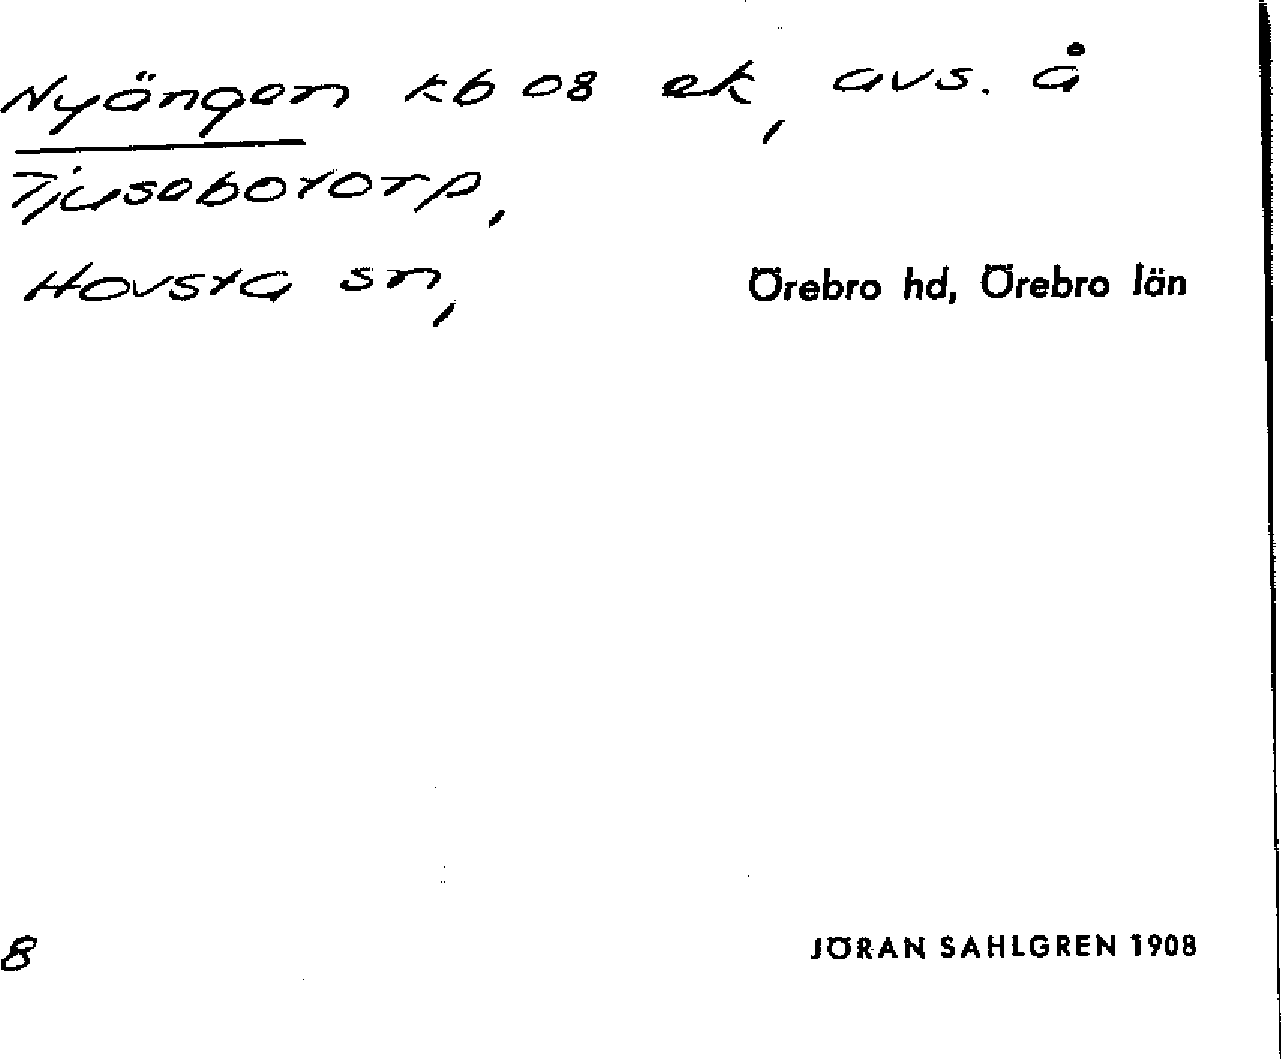 Nyängen kb 08 ek, avs. å
Tjusebotorp,
Hovsta sn, Örebro hd, Örebro län
8 JÖRAN SAHLGREN 1908